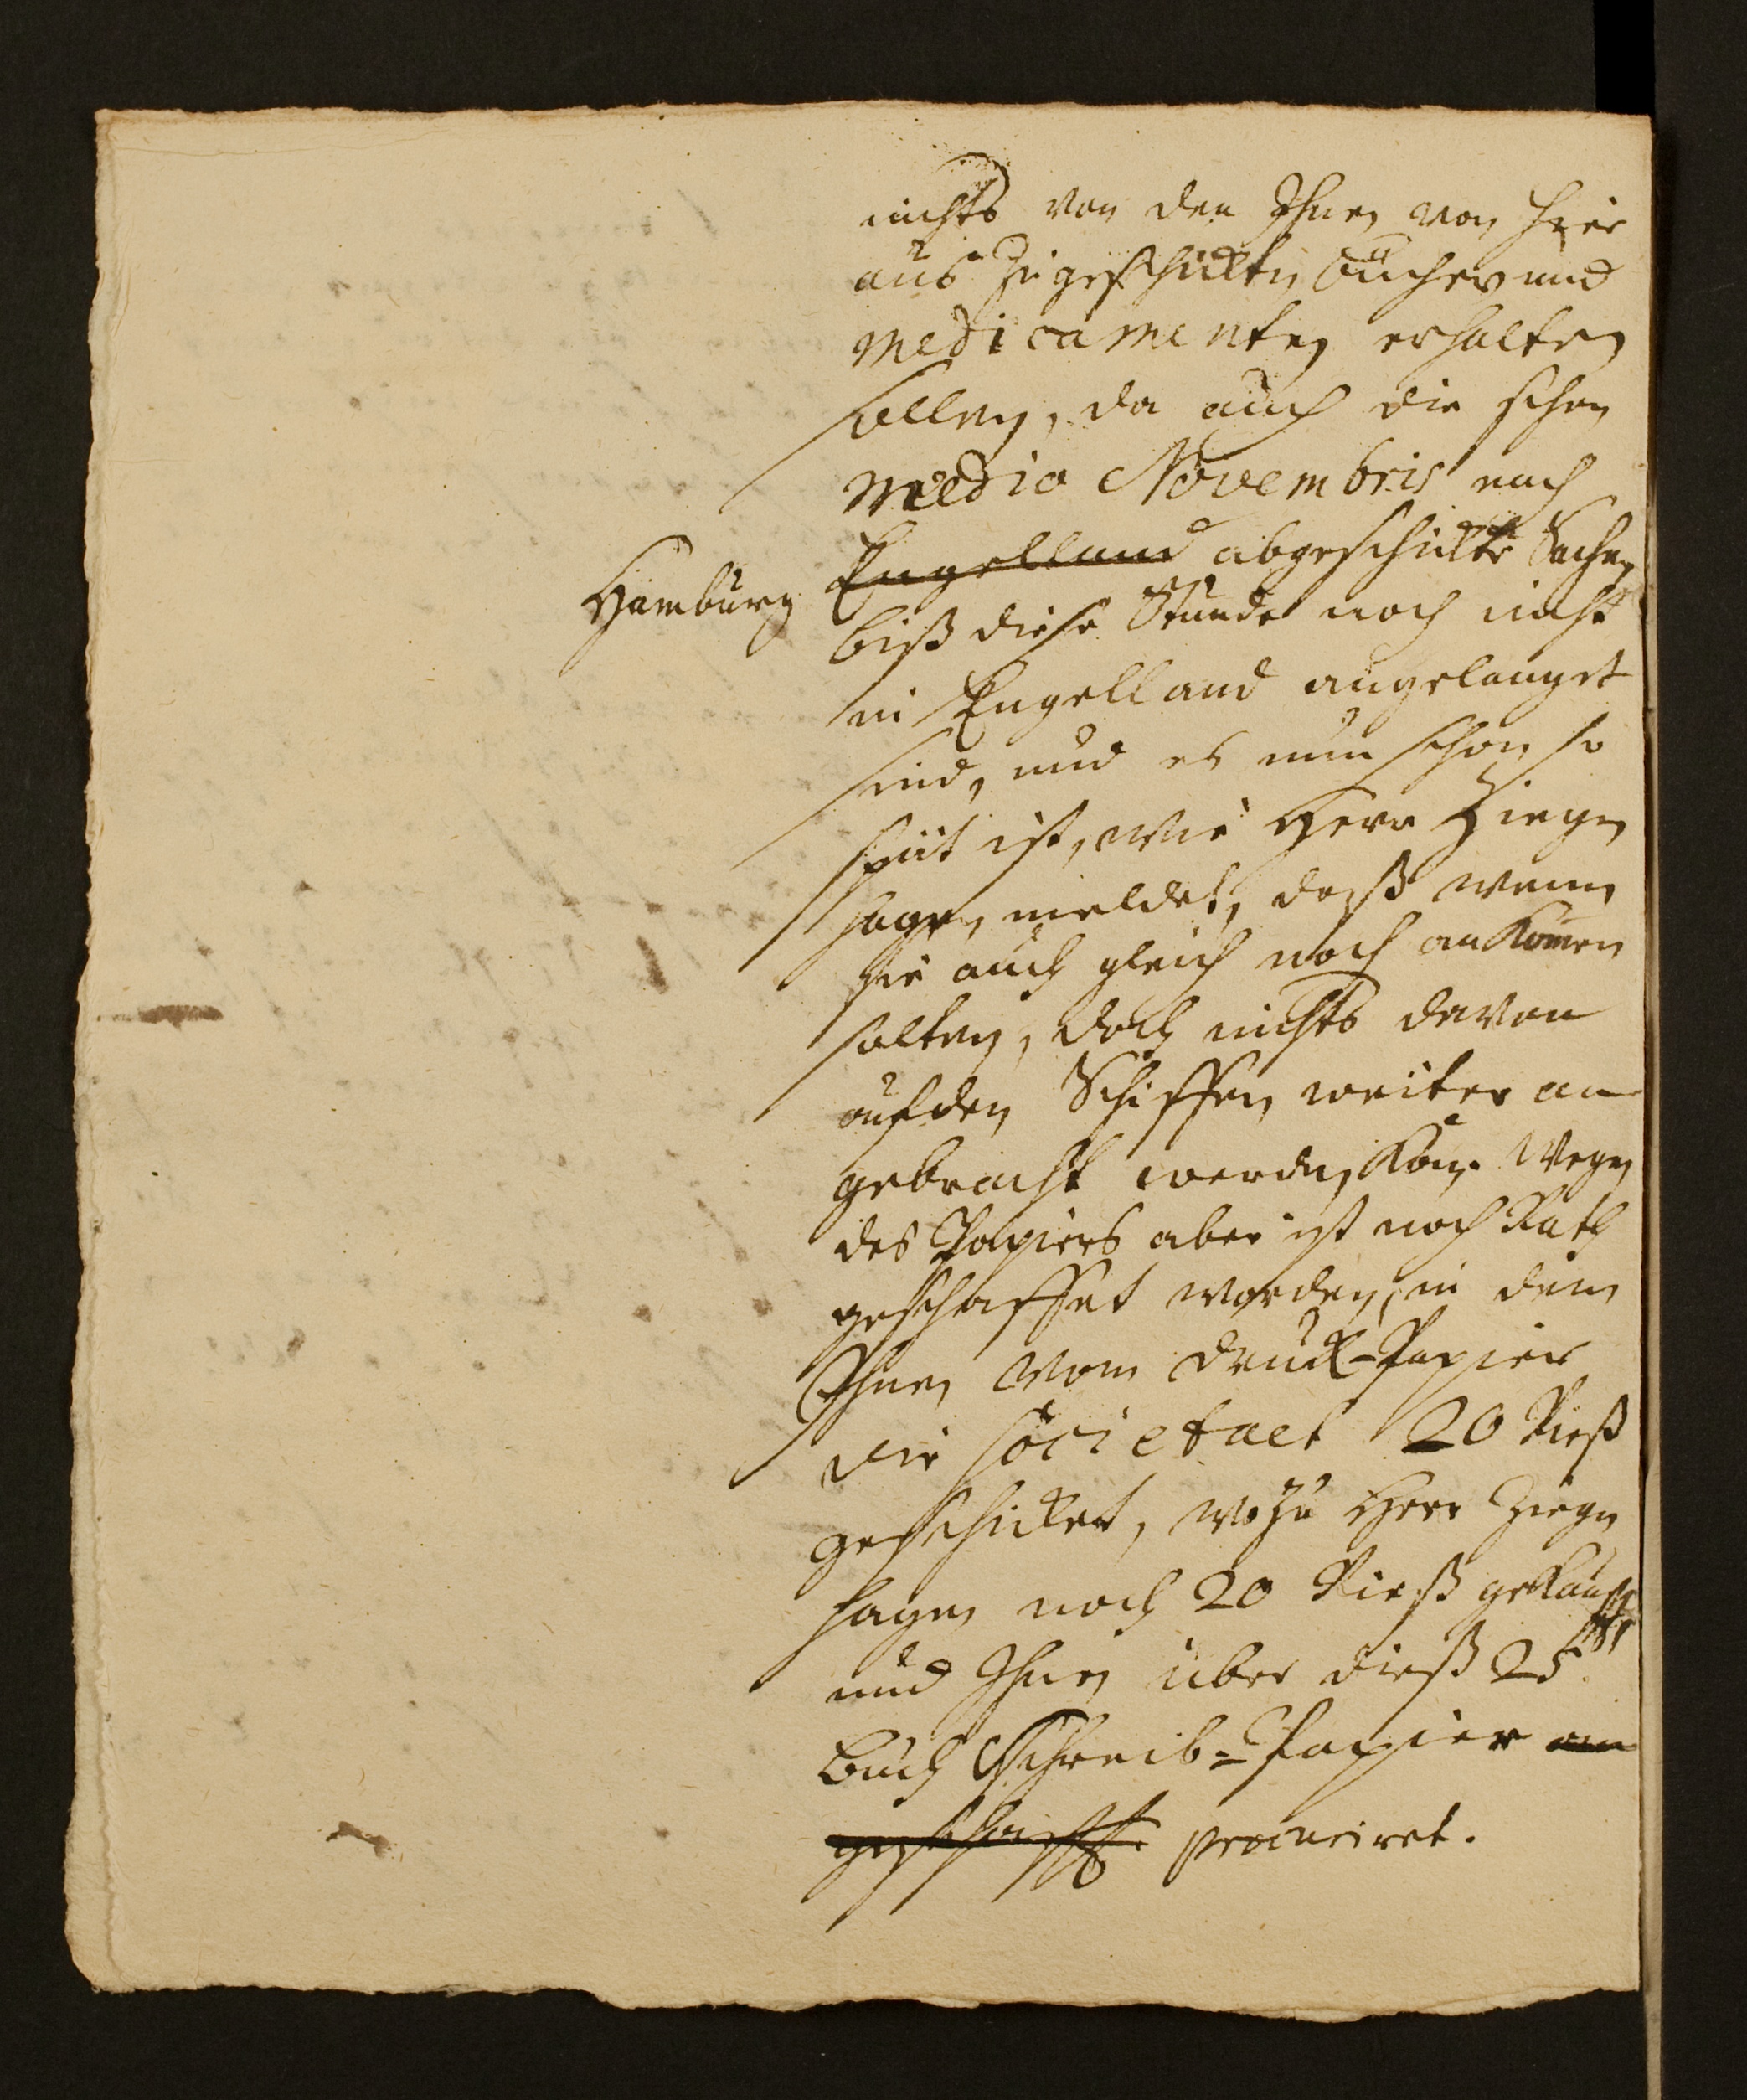 nichts von den Ihnen von hier
aus zugeschickten Bücher und
Medicamenten erhalten
sollen, da auch die schon
medio Novembris nach
Hamburg
Engelland abgeschickte Sachen
biß diese Stunde noch nicht
in Engelland angelanget
sind, und es nun schon so
spät ist, wie Herr Ziegen
hagen meldet, daß wenn
sie auch gleich noch ankomen
solten, doch nichts davon
auf den Schiffen weiter an
gebracht werden kan. Wegen
des Papiers aber ist noch Rath
geschaffet worden, in dem
Ihnen vom Druck-Papier
die Societaet 20 Rieß
geschicket, wozu Herr Ziegen
hagen noch 20 Rieß gekaufft
und Ihnen über dieß 25
Buch Schreib-Papier an
geschafft procuriret.